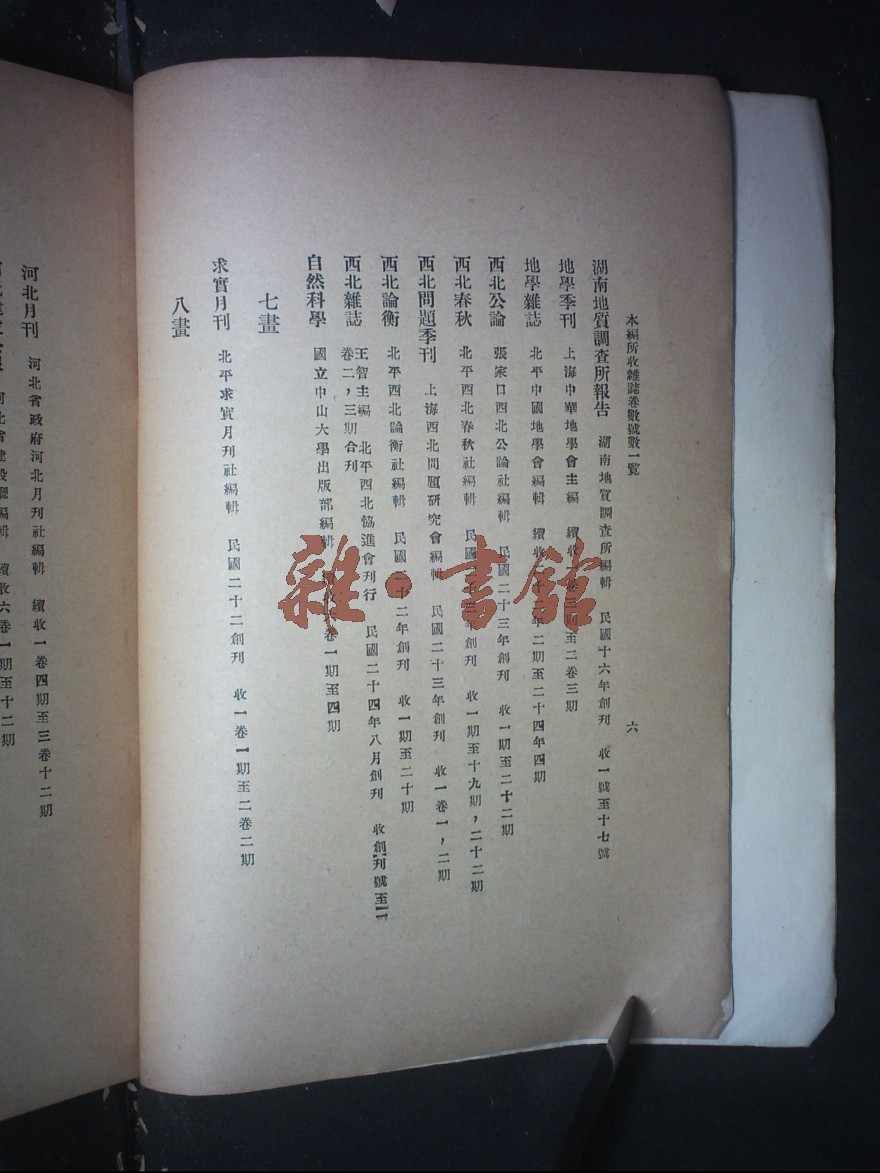 本編所收雜誌卷數號數一覽
六
湖南地質調查所報告 湖南地質調查所編輯 民國十六年創刊 收一號至十七號
地學季刊 上海中華地學會主編 續收一卷三期至二卷三期
地學雜誌 北平中國地學會編輯 續收二十年二期至二十四年四期
西北公論 張家口西北公論社編輯 民國二十三年創刊 收一期至二十二期
西北春秋 北平西北春秋社編輯 民國二十三年創刊 收一期至十九期，二十二期
西北問題季刊 上海西北問題研究會編輯 民國二十三年創刊 收一卷一，二期
西北論衡 北平西北論衡社編輯 民國二十二年創刊 收一期至二十期
西北雜誌 王智主編 北平西北協進會刊行 民國二十四年八月創刊 收創刊號至一
卷二，三期合刊
自然科學 國立中山大學出版部編輯 續收 卷一期至四期
七畫
求實月刊 北平求實月刊社編輯 民國二十二創刊 收一卷一期至二卷二期
八畫
河北月刊 河北省政府河北月刊社編輯 續收一卷四期至三卷十二期
編輯 續收六卷一期至十二期
雜·書館